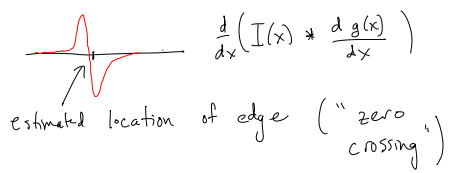 d/dx ( I(x) * d g(x)/dx )
estimated location of edge ( " zero
crossing " )